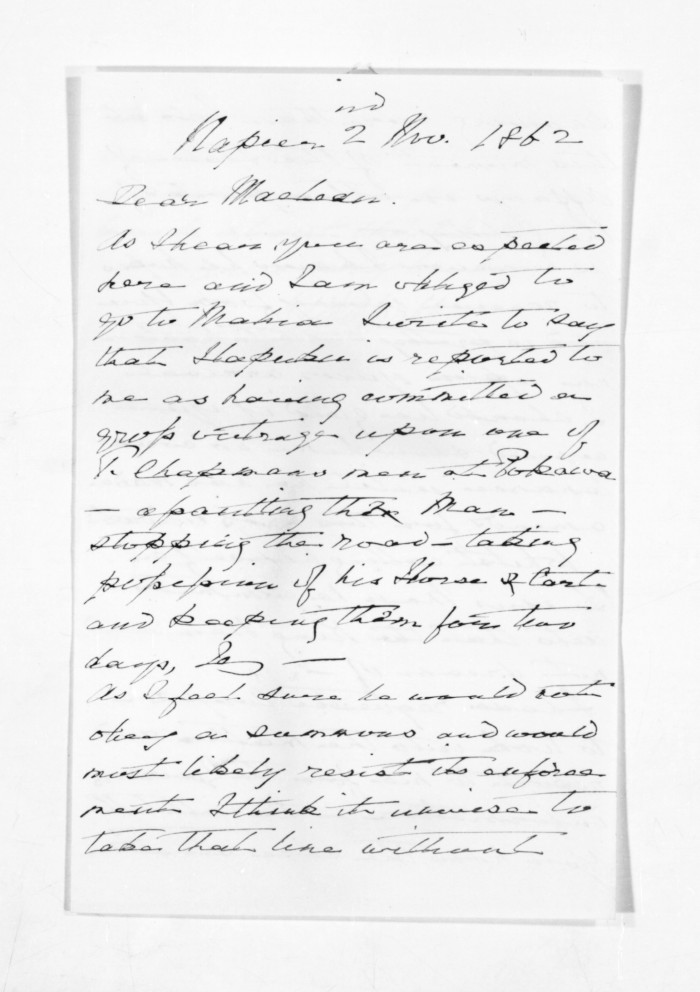 Napier 2nd Nov. 1862
Dear MacLean.
As I hear you are expected
here and I am obliged to
go to Mahia I write to say
that Hapuku is reported to
me as having committed a
gross outrage upon one of
T. Chapmans men at Pokawa
— assaulting the Man —
stopping the road — taking
possession of his Horse & Cart
and keeping them for two
days, —
As I feel sure he would not
obey a summons and would
most likely resist its enforce
ment I think it unwise to
take that line without